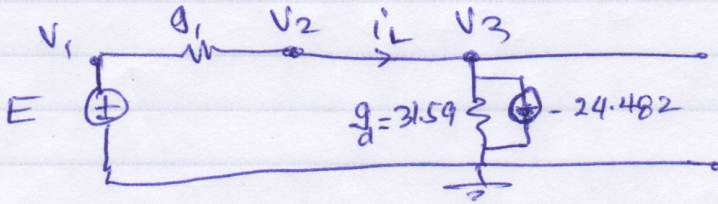 V1 g1 V2 iL V3
E + gd=31.59 - 24.482